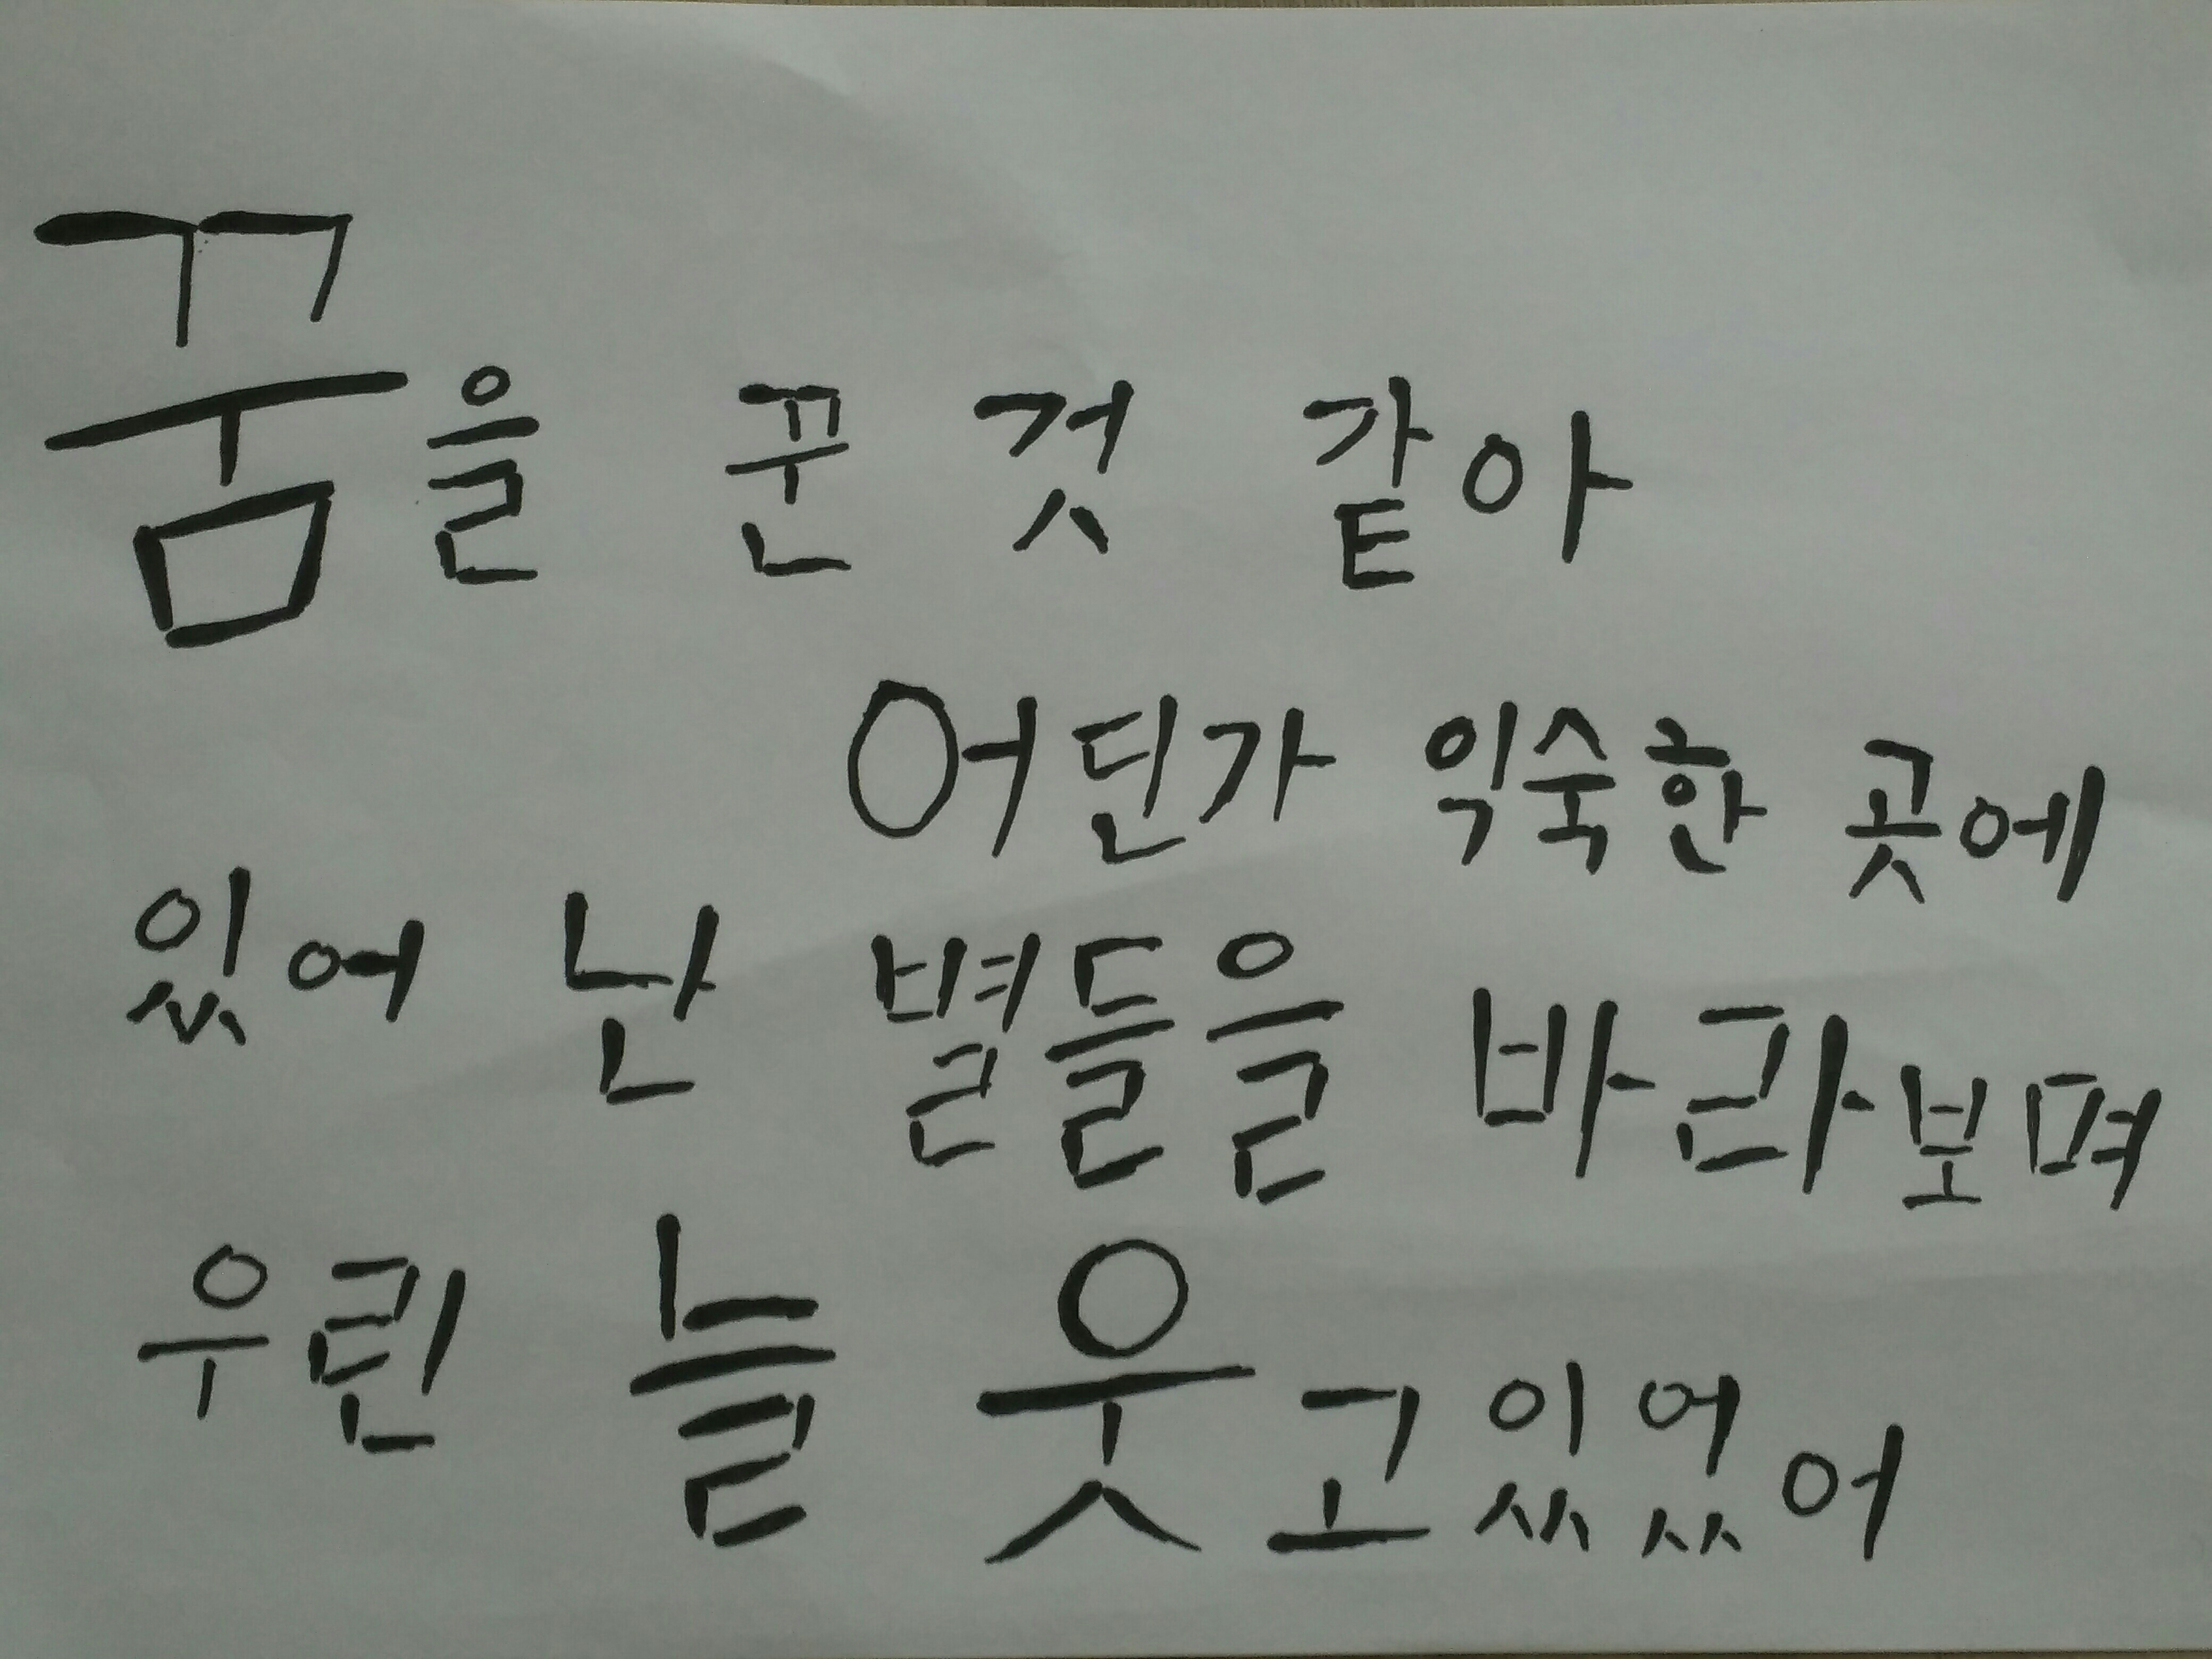 꿈을 꾼 것 같아
어딘가 익숙한 곳에
있어 난 별들을 바라보며
우린 늘 웃고있었어